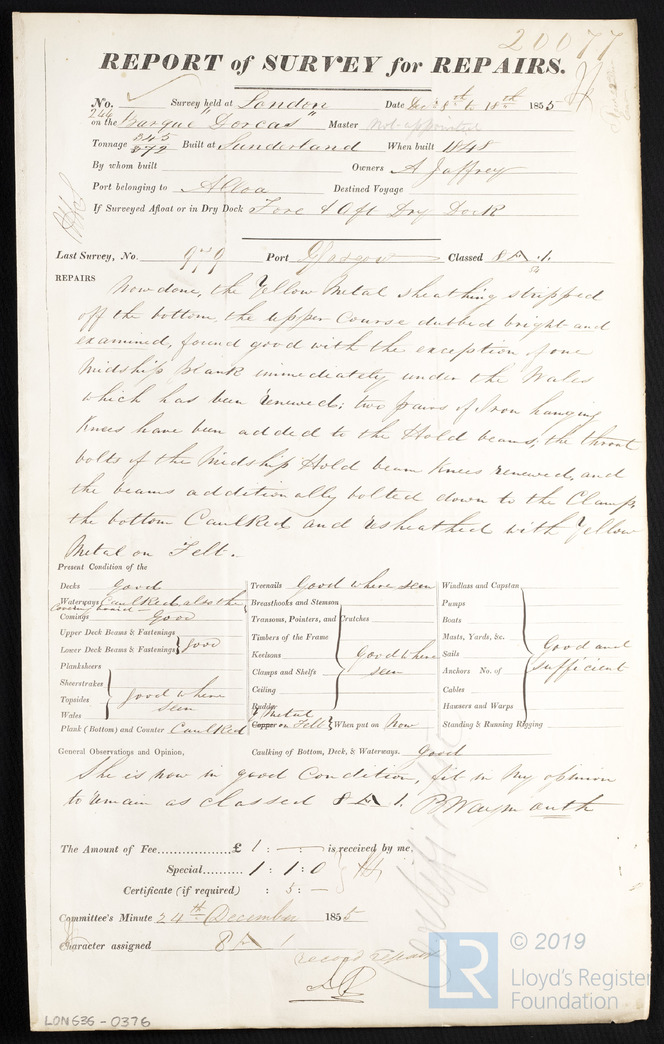 20077
REPORT of SURVEY for REPAIRS.
No. Survey held at London Date Decr 8th to 18th 1855
244
on the Barque "Dorcas" Master Not appointed
Tonnage 245 272 Built at Sunderland When built 1848
By whom built Owners A Jaffrey
Port belonging to Alloa Destined Voyage
If Surveyed Afloat or in Dry Dock Fore & Aft Dry Dock
Last Survey, No. 979 Port Glasgow Classed 8 A .1.
REPAIRS Now done, the Yellow Metal sheathing stripped
off the bottom, the upper Course dubbed bright and
examined, found good with the exception of one
Midship plank immediately under the Wales
which has been renewed; two pairs of Iron hanging
Knees have been added to the Hold beams, the throat
bolts of the Midship Hold beam Knees renewed, and
the beams additionally bolted down to the Clamps
the bottom Caulked and resheathed with Yellow
Metal on Felt.
Present Condition of the
Decks good
Waterways Caulked also the
Covering board
Comings Good
Upper Deck Beams & Fastenings
Lower Deck Beams & Fastenings good
Planksheers
Sheerstrakes
Topsides good where seen
Wales
Plank (Bottom) and Counter Caulked
Treenails Good where seen
Breasthooks and Stemson
Transoms, Pointers, and Crutches
Timbers of the Frame
Keelsons good where
Clamps and Shelfs seen
Ceiling
Rudder
Y Metal
Copper on Felt When put on Now
Windlass and Capstan
Pumps
Boats
Masts, Yards, &c.
Sails Good and
Anchors No. of sufficient
Cables
Hawsers and Warps
Standing & Running Rigging
General Observations and Opinion, Caulking of Bottom, Deck, & Waterways. Good
She is now in good Condition, fit in my opinion
to remain as classed 8 A 1. B Waymouth
The Amount of Fee £ 1 : - : - is received by me,
Special 1 : 1 : 0
Certificate (if required) : 5 : -
Committee's Minute 24th December 1855
Character assigned 8 A 1
record repairs
Certificate
LON636-0376
LR © 2019
Lloyd's Register
Foundation